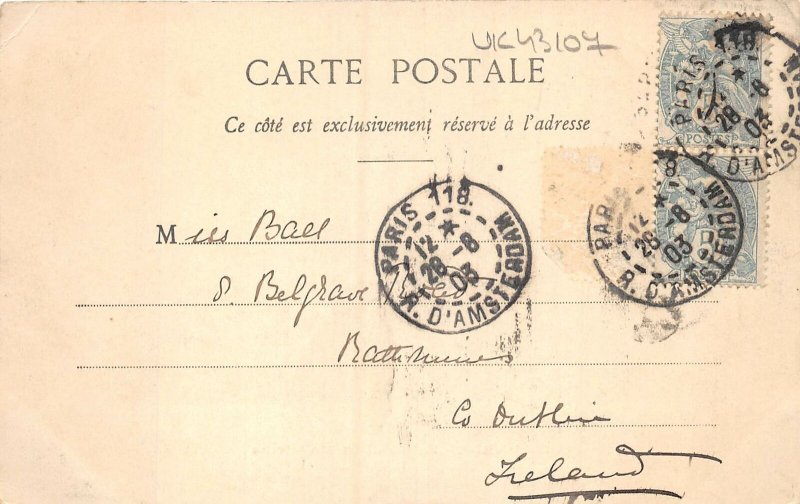 UK43107
CARTE POSTALE
Ce côté est exclusivement réservé à l'adresse
Miss Ball
8. Belgrave
Rathmines
Co Dublin
Ireland
PARIS 118.
12
28 -8
03
R. D'AMSTERDAM
PARIS 118
12
28 -8
03
R. D'AMSTERDAM
PARIS 118
28 -8
03
R. D'AMSTERDAM
POSTES